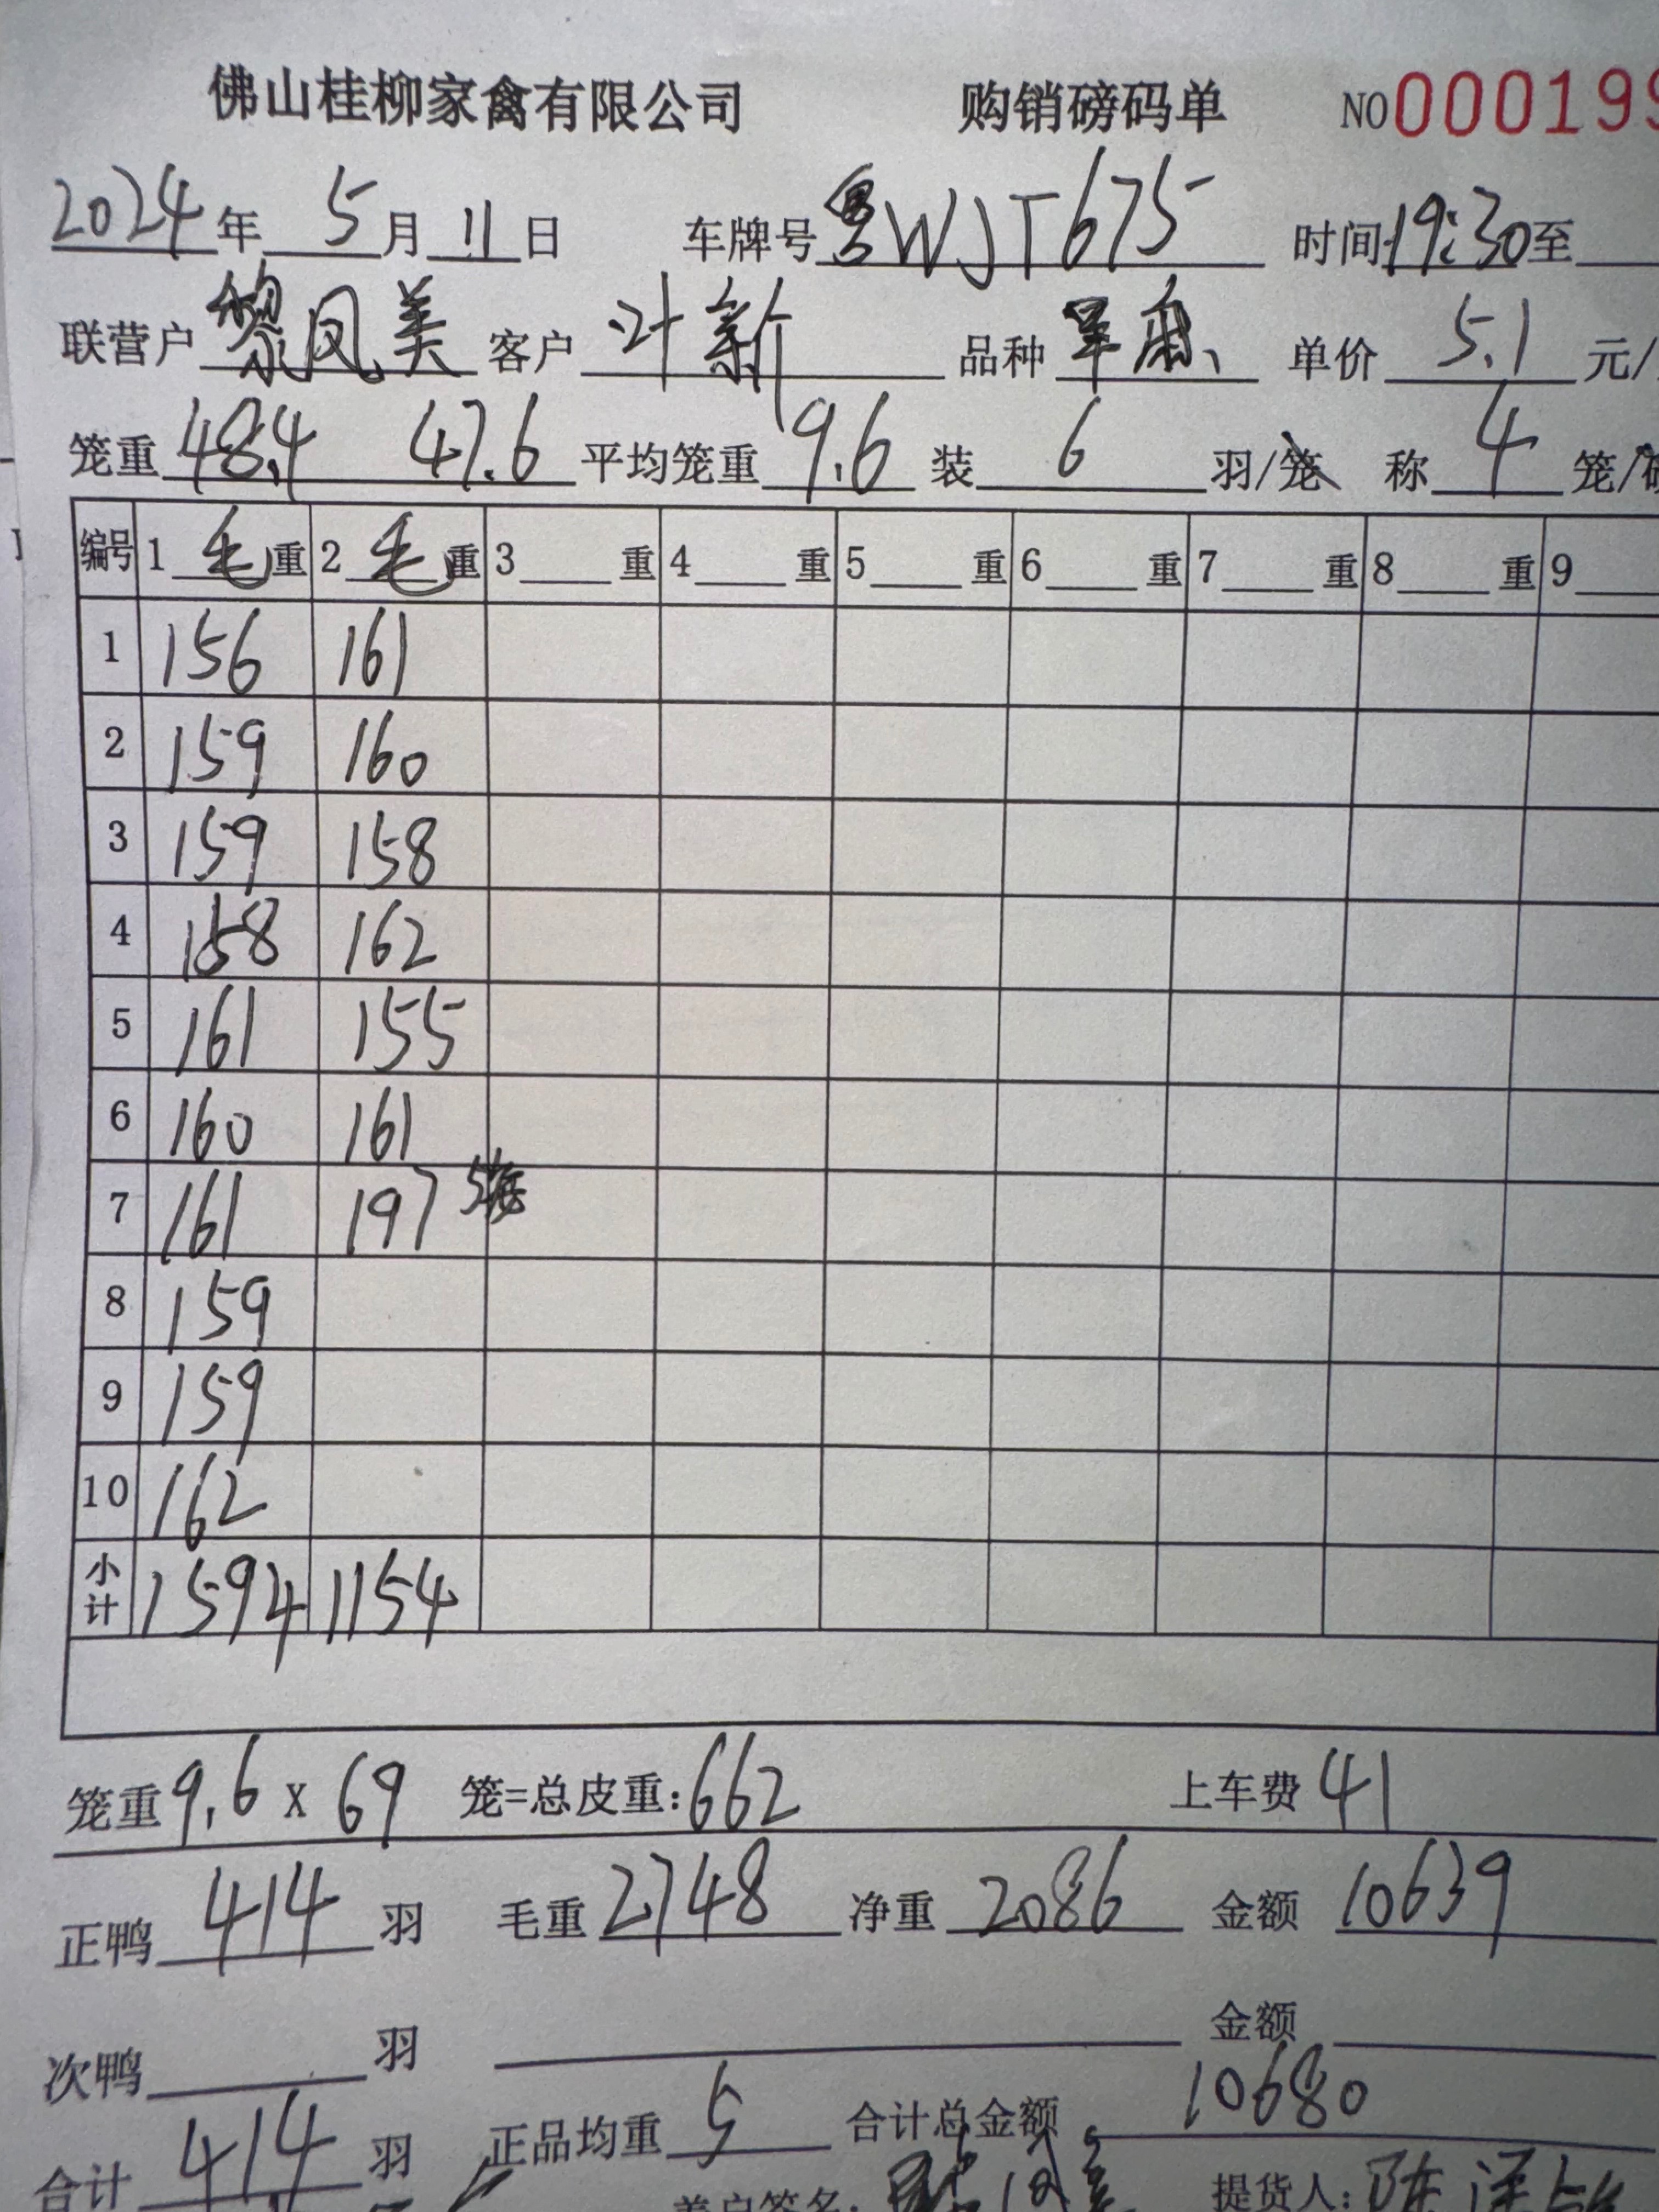 佛山桂柳家禽有限公司 购销磅码单 NO 000199
2024年 5月 11日 车牌号 粤WJT675 时间 19:30至
联营户 黎凤美 客户 叶新 品种 单价 5.1 元/
笼重 48.4 47.6 平均笼重 9.6 装 6 羽/笼 称 4 笼/磅
编号 1 毛重 2 毛重 3 重 4 重 5 重 6 重 7 重 8 重 9
1 156 161
2 159 160
3 159 158
4 158 162
5 161 155
6 160 161
7 161 197 5笼
8 159
9 159
10 162
小计 1594 1154
笼重 9.6 X 69 笼=总皮重:662 上车费 41
正鸭 414 羽 毛重 2748 净重 2086 金额 10639
次鸭 羽 金额
合计 414 羽 正品均重 5 合计总金额 10680
养户签名: 提货人:陈